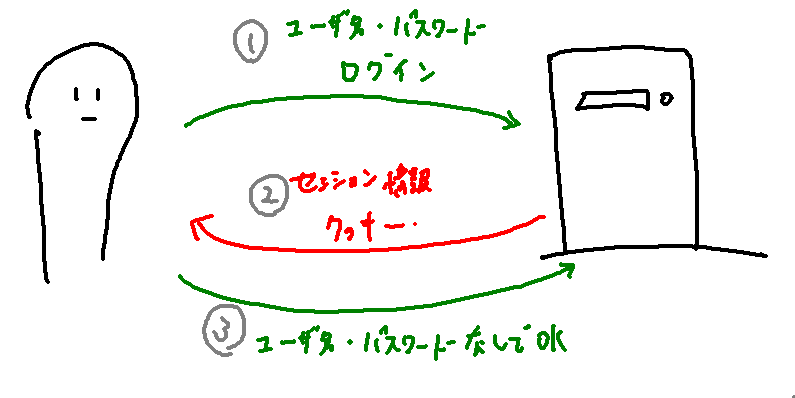 ① ユーザ名・パスワード
ログイン
② セッション情報
クッキー
③ ユーザ名・パスワードなしでOK